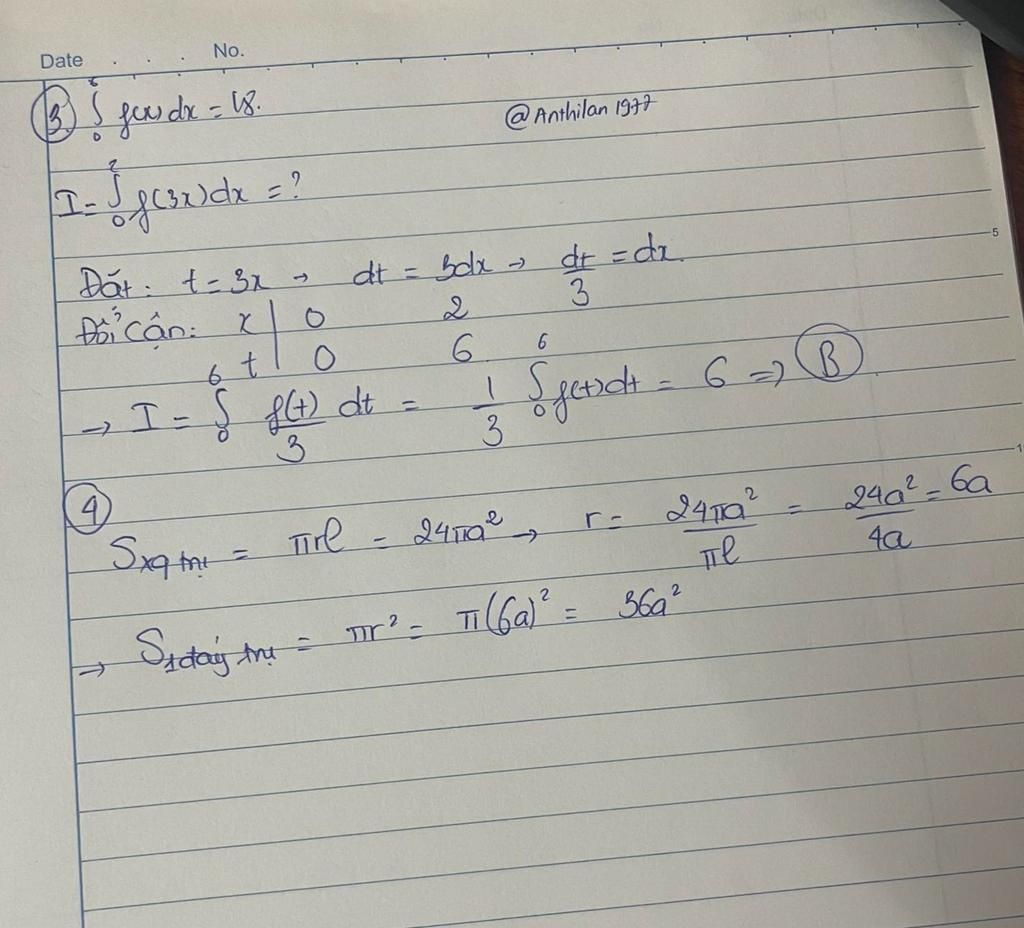 Date . . . . No.
③ ∫₀⁶ f(x) dx = 18.
@Anthilan 1977
I = ∫₀² f(3x) dx = ?
5
Đặt: t = 3x → dt = 3dx → dt/3 = dx.
Đổi cận: x | 0 2
t | 0 6
→ I = ∫₀⁶ f(t)/3 dt = 1/3 ∫₀⁶ f(t)dt = 6 => Ⓑ
④
Sxq trụ = πrl = 24πa² → r = 24πa²/πl = 24a²/4a = 6a
→ S1đáy trụ = πr² = π(6a)² = 36a²